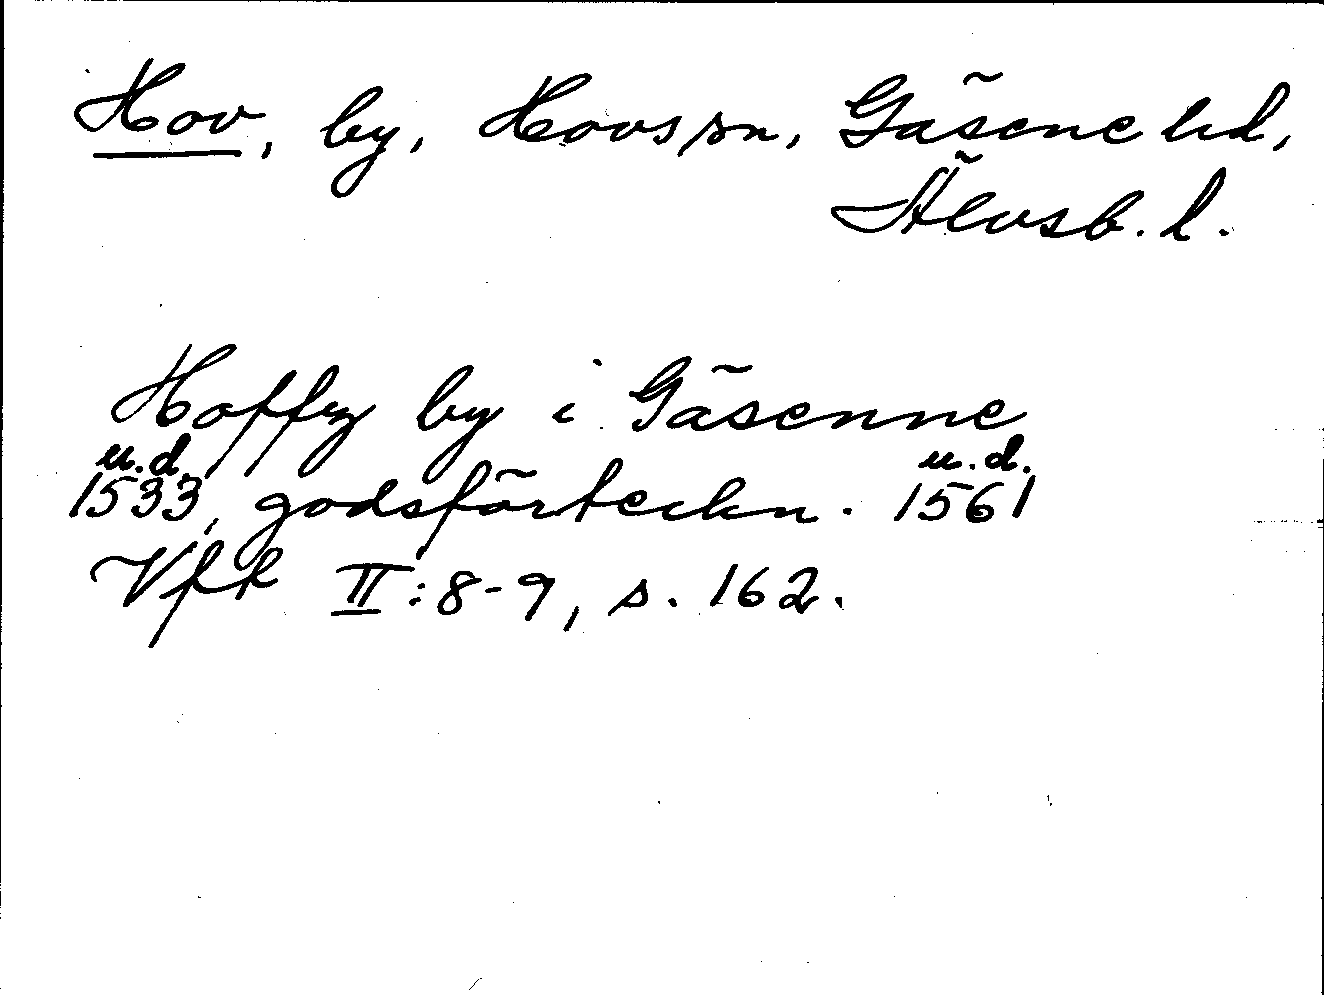 Hov, by, Hovs sn, Gäsene hd,
Älvsb. l.
Hoffz by i Gäsenne
u.d. u.d.
1533, godsförteckn. 1561
Vfk II:8-9, s. 162.